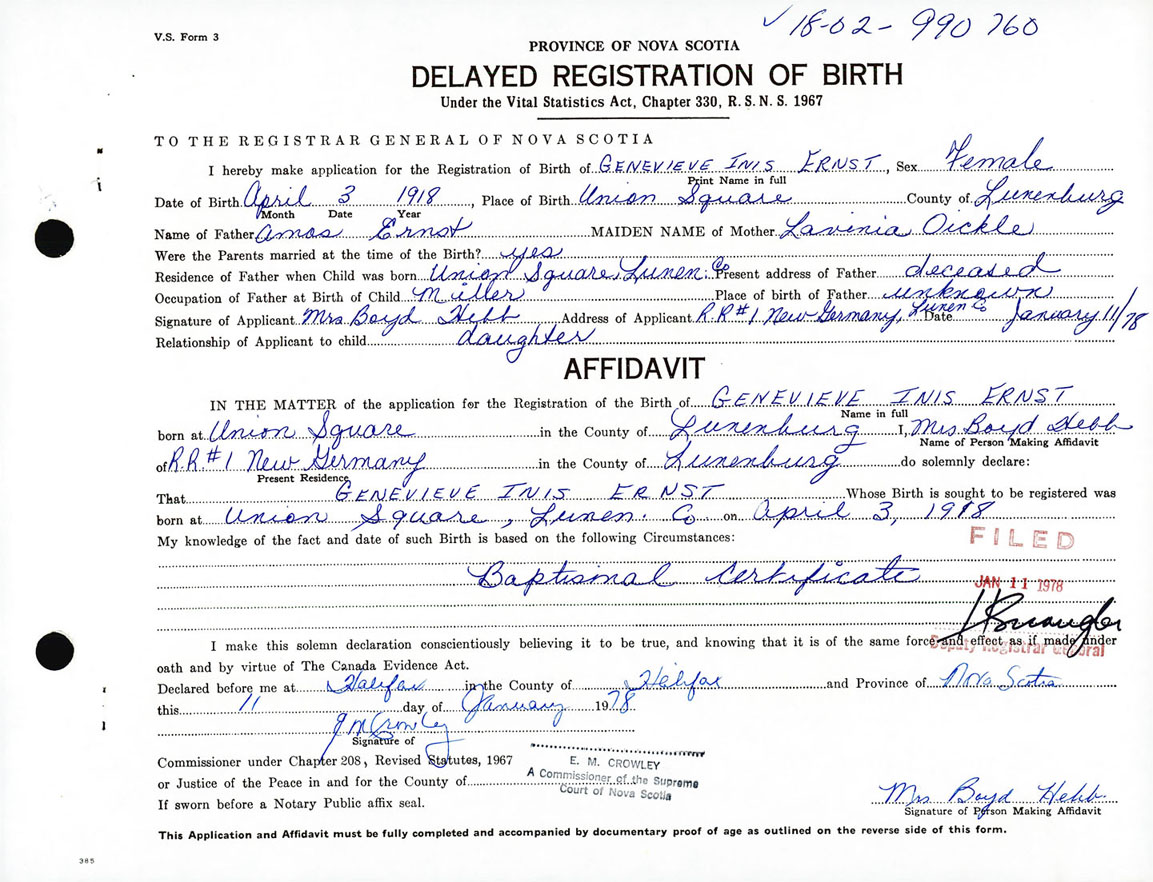 ✓ 18-02-990760
V.S. Form 3
PROVINCE OF NOVA SCOTIA
DELAYED REGISTRATION OF BIRTH
Under the Vital Statistics Act, Chapter 330, R. S. N. S. 1967
TO THE REGISTRAR GENERAL OF NOVA SCOTIA
I hereby make application for the Registration of Birth of GENEVIEVE INIS ERNST, Sex Female
Print Name in full
Date of Birth April 3 1918, Place of Birth Union Square County of Lunenburg
Month Date Year
Name of Father Amos Ernst MAIDEN NAME of Mother Lavinia Oickle
Were the Parents married at the time of the Birth? yes
Residence of Father when Child was born Union Square, Lunen. Co Present address of Father deceased
Occupation of Father at Birth of Child Miller Place of birth of Father unknown
Signature of Applicant Mrs Boyd Hebb Address of Applicant R.R.#1 New Germany, Lunen Co Date January 11/78
Relationship of Applicant to child daughter
AFFIDAVIT
IN THE MATTER of the application for the Registration of the Birth of GENEVIEVE INIS ERNST
Name in full
born at Union Square in the County of Lunenburg I, Mrs. Boyd Hebb
Name of Person Making Affidavit
of R.R.#1 New Germany in the County of Lunenburg do solemnly declare:
Present Residence
That GENEVIEVE INIS ERNST Whose Birth is sought to be registered was
born at Union Square, Lunen. Co on April 3, 1918
My knowledge of the fact and date of such Birth is based on the following Circumstances:
FILED
Baptismal Certificate
JAN 11 1978
I make this solemn declaration conscientiously believing it to be true, and knowing that it is of the same force and effect as if made under
Deputy Registrar General
oath and by virtue of The Canada Evidence Act.
Declared before me at Halifax in the County of Halifax and Province of Nova Scotia
this 11 day of January 1978
Crowley
Signature of
Commissioner under Chapter 208, Revised Statutes, 1967
E. M. CROWLEY
A Commissioner of the Supreme
Court of Nova Scotia
or Justice of the Peace in and for the County of
If sworn before a Notary Public affix seal.
Mrs Boyd Hebb
Signature of Person Making Affidavit
This Application and Affidavit must be fully completed and accompanied by documentary proof of age as outlined on the reverse side of this form.
385